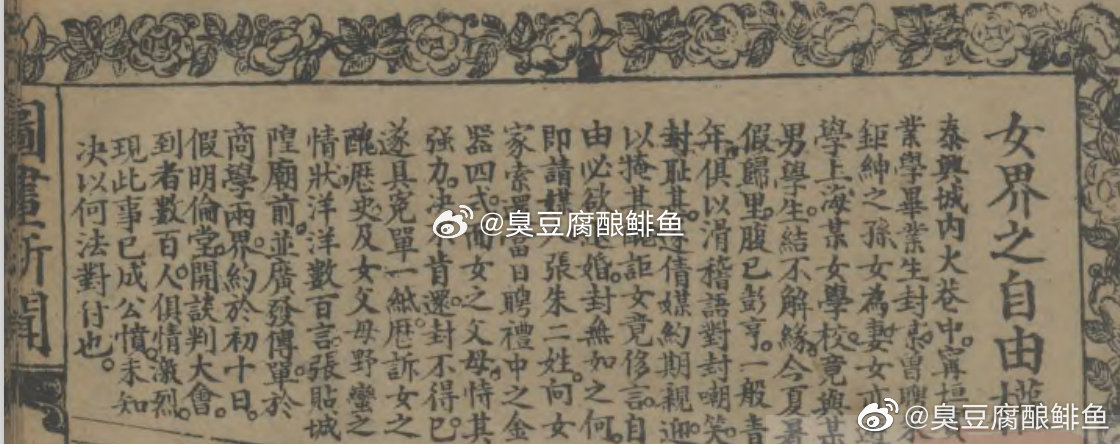 女界之自由
泰興城內火巷中寗垣
業學畢業生封曾聘
鉅紳之孫女為妻女
學上海某女學校。竟與某
男學生。結不解緣。今夏暑
假歸里。腹已彭亨。一般青
年。俱以滑稽語對封嘲笑。
封耻甚。遂倩媒約期親迎
以掩其詎女竟侈言自
由必欲婚。封無如之何。
即請媒張朱二姓。向女
家索還當日聘禮中之金
器四式。而女之父母。恃其
强力。肯還。封不得已。
遂具冤單一紙。歷訴女之
醜歷史及女父母野蠻之
情狀洋洋數百言。張貼城
隍廟前。並廣發傳單於
商學兩界。約於初十日。
假明倫堂。開談判大會。
到者數百人。俱情激烈。
現此事已成公憤。未知
决以何法對付也。
圖畫新聞
@臭豆腐酿鲱鱼
@臭豆腐酿鲱鱼